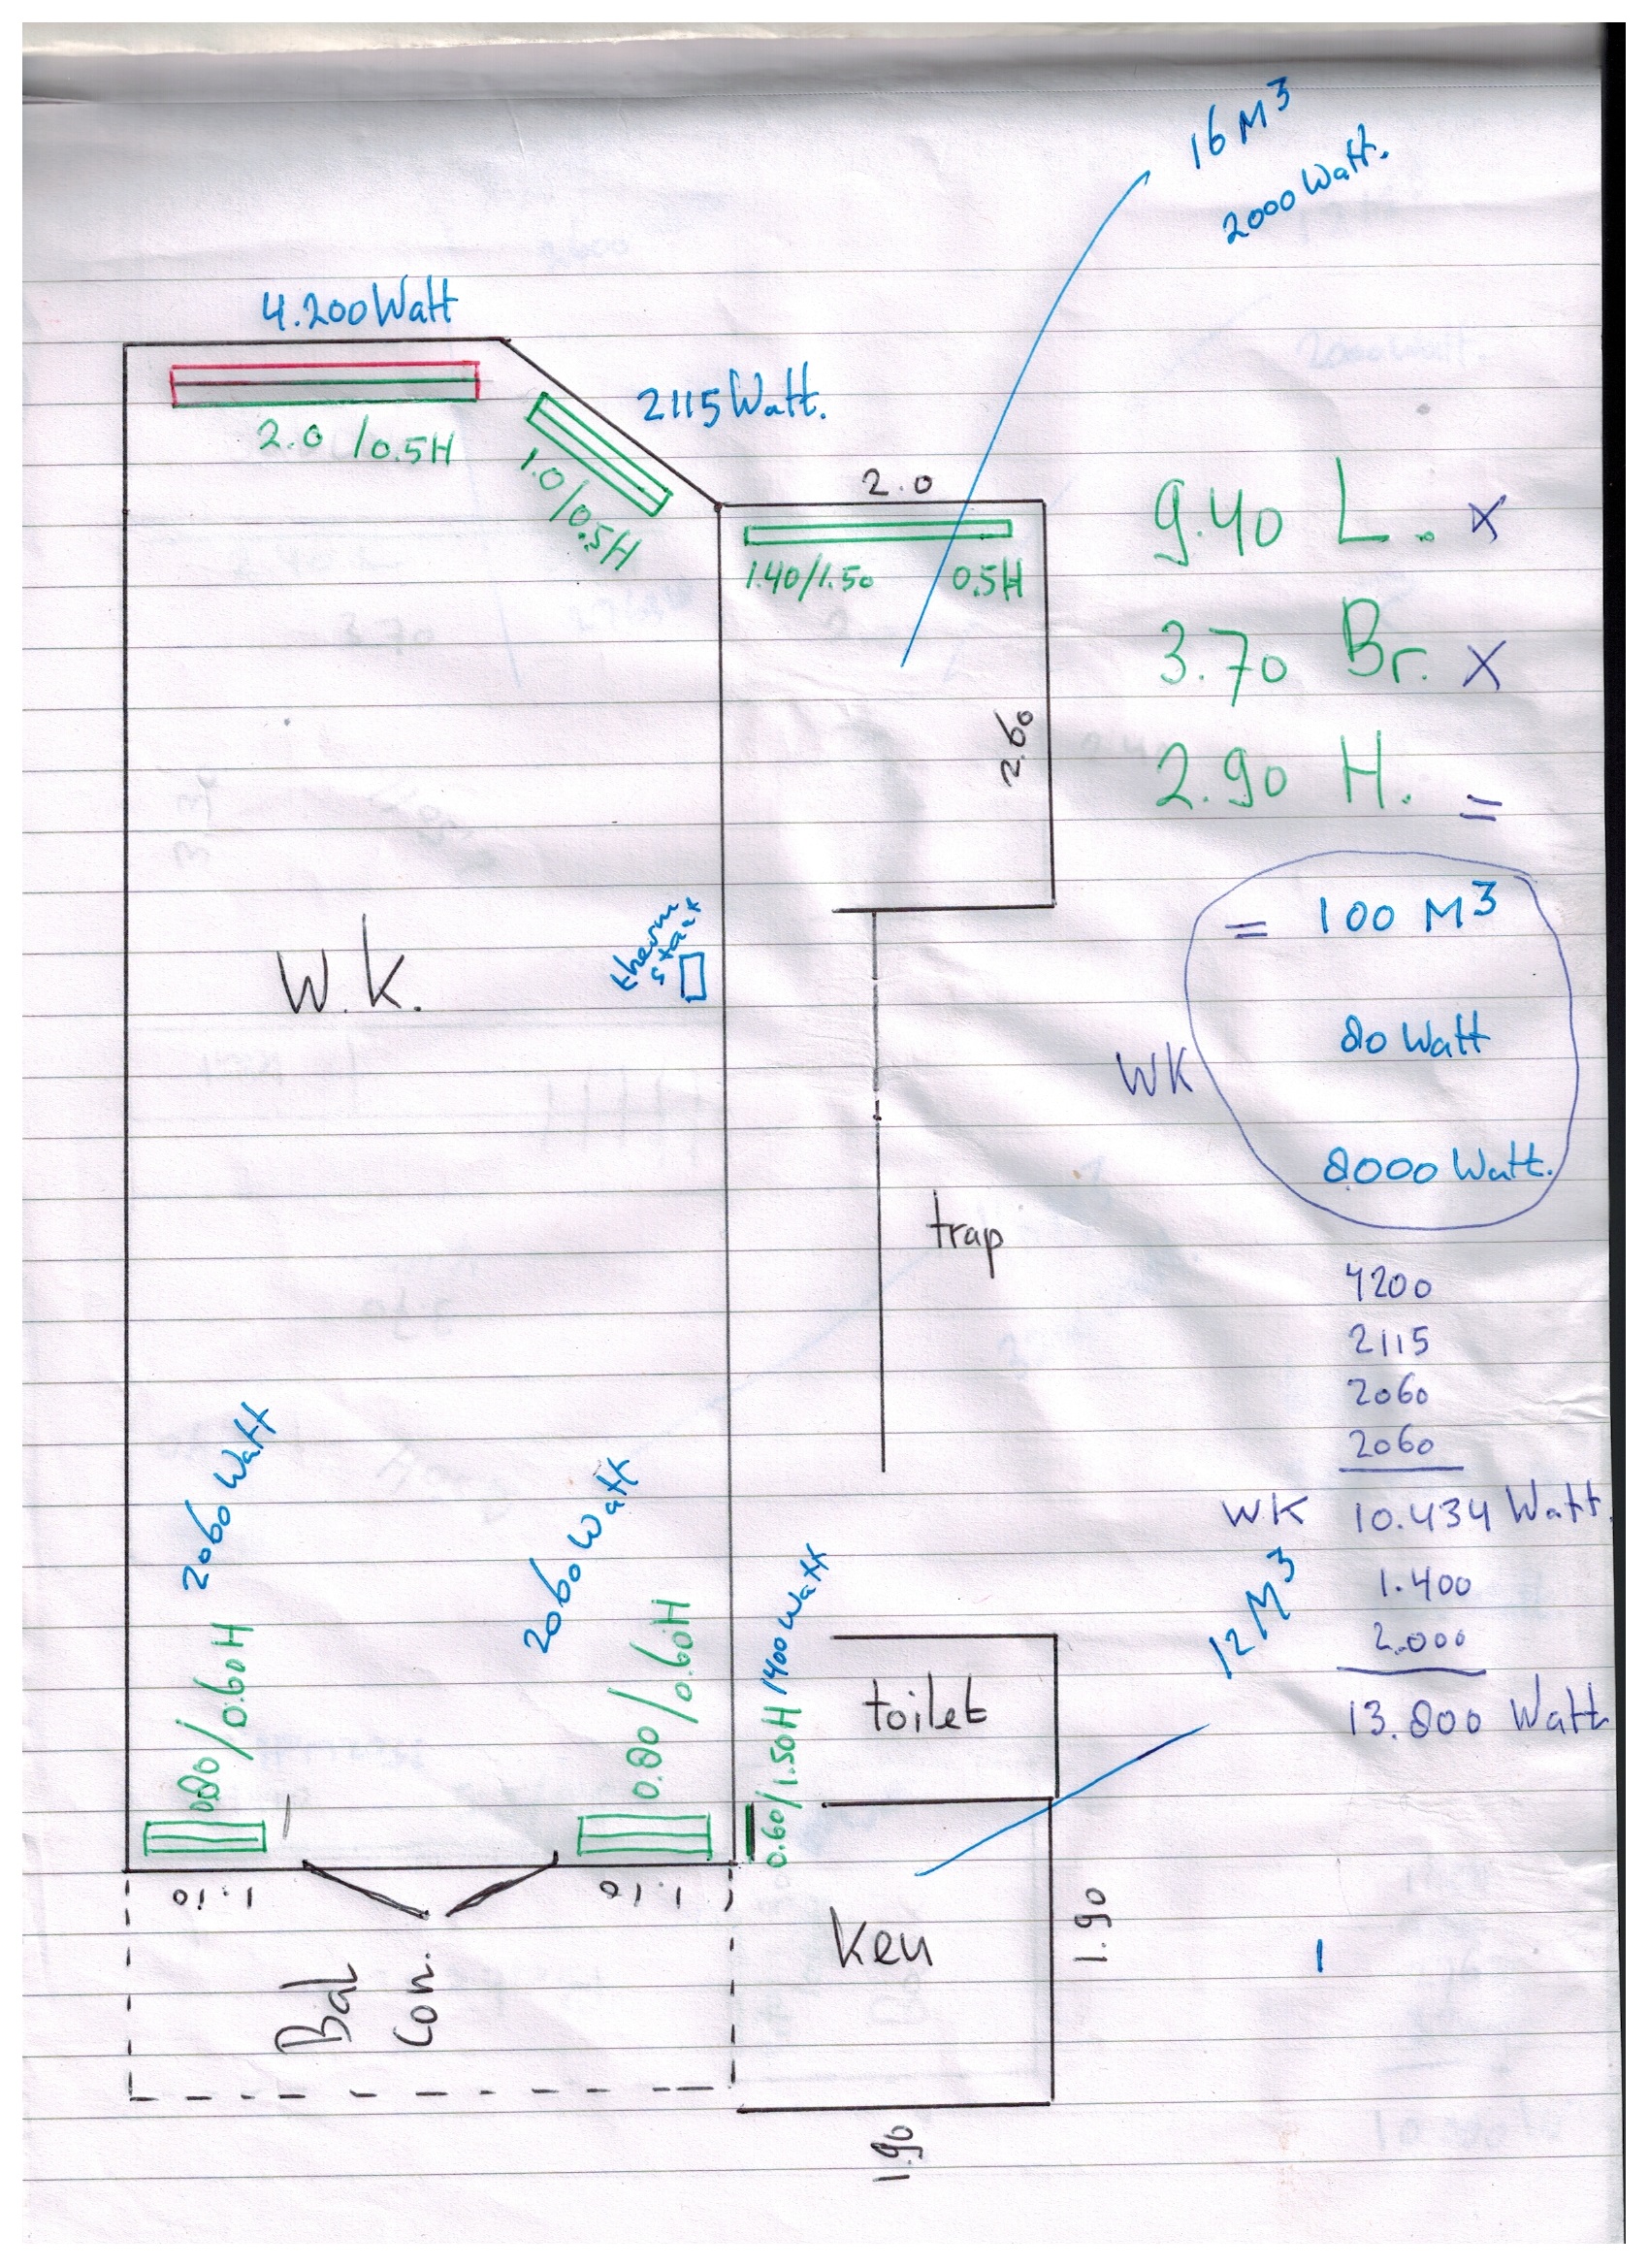 16 M³
2000 Watt.
4.200 Watt
2115 Watt.
2.0 / 0.5H
1.0/0.5H
2.0
1.40/1.50 0.5H
2.60
9.40 L. x
3.70 Br. x
2.90 H. =
= 100 M³
80 Watt
WK
8000 Watt.
W.K.
therm
staat
trap
4200
2115
2060
2060
WK 10.434 Watt.
1.400
2.000
13.800 Watt
12 M³
2060 Watt
2060 Watt
0.80/0.60H
0.80/0.60H
0.60/1.50H 1400 Watt
toilet
1.10
1.10
Keu
1.90
1.90
Bal
Con.